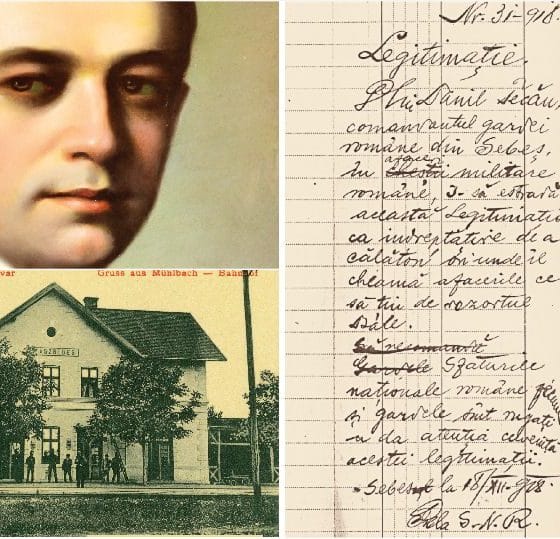 var Gruss aus Mühlbach — Bahnhof
Nr. 31-918.
Legitimație.
Dlui Dănil Săcău,
comandantul gardei
române din Sebeș,
în afaceri militare
române, i-să estradă
această Legitimație
ca îndreptățire de a
călători ori unde îl
cheamă afacerile ce
să țin de rezortul
său.
Sfaturile
naționale române
și gardele sînt rugați
a da atenția cuvenită
acestei legitimații.
Sebeș la 18/XII-918
S. N. R.